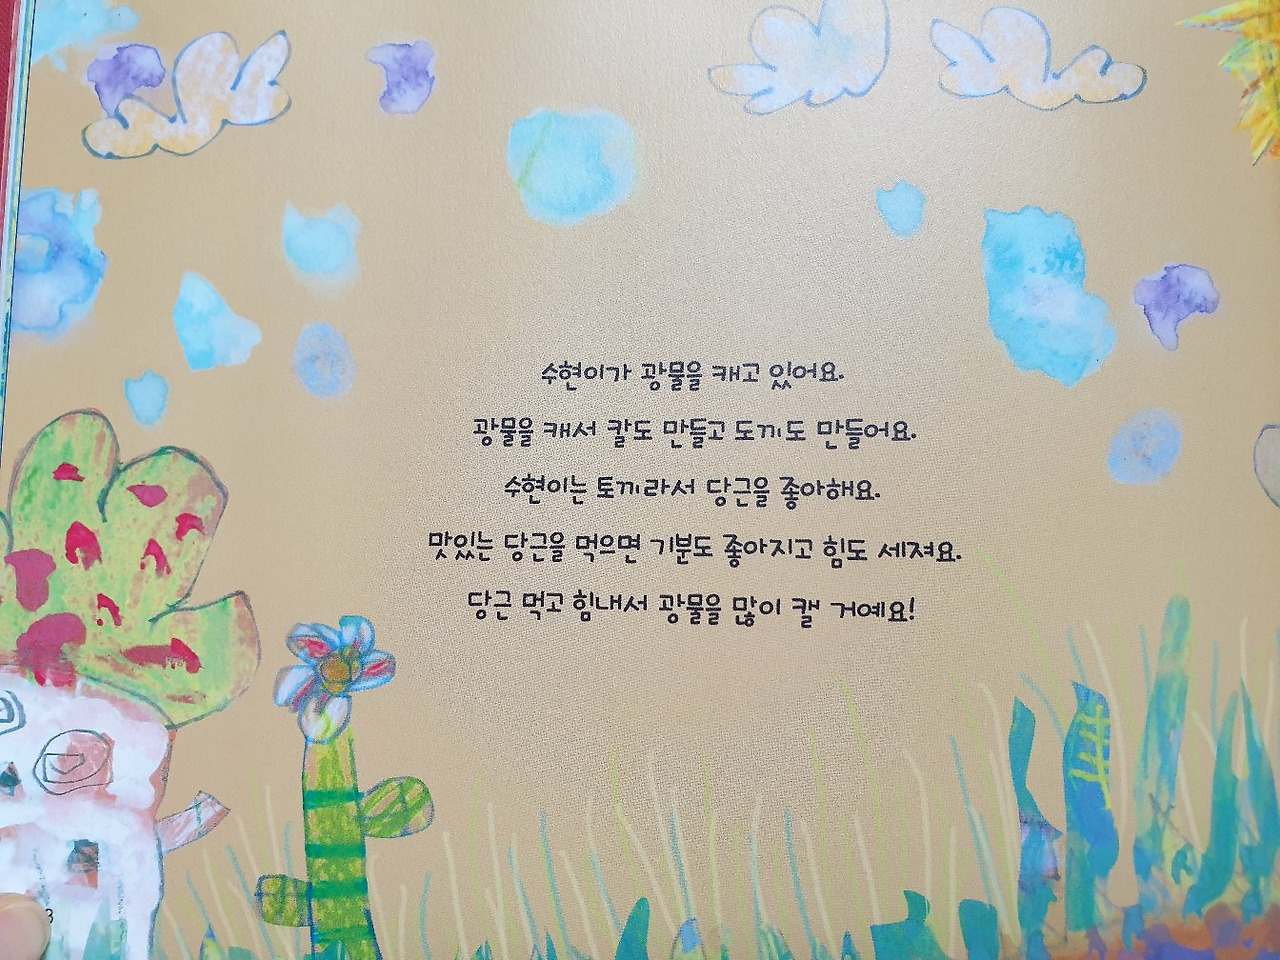 수현이가 광물을 캐고 있어요.
광물을 캐서 칼도 만들고 도끼도 만들어요.
수현이는 토끼라서 당근을 좋아해요.
맛있는 당근을 먹으면 기분도 좋아지고 힘도 세져요.
당근 먹고 힘내서 광물을 많이 캘 거예요!